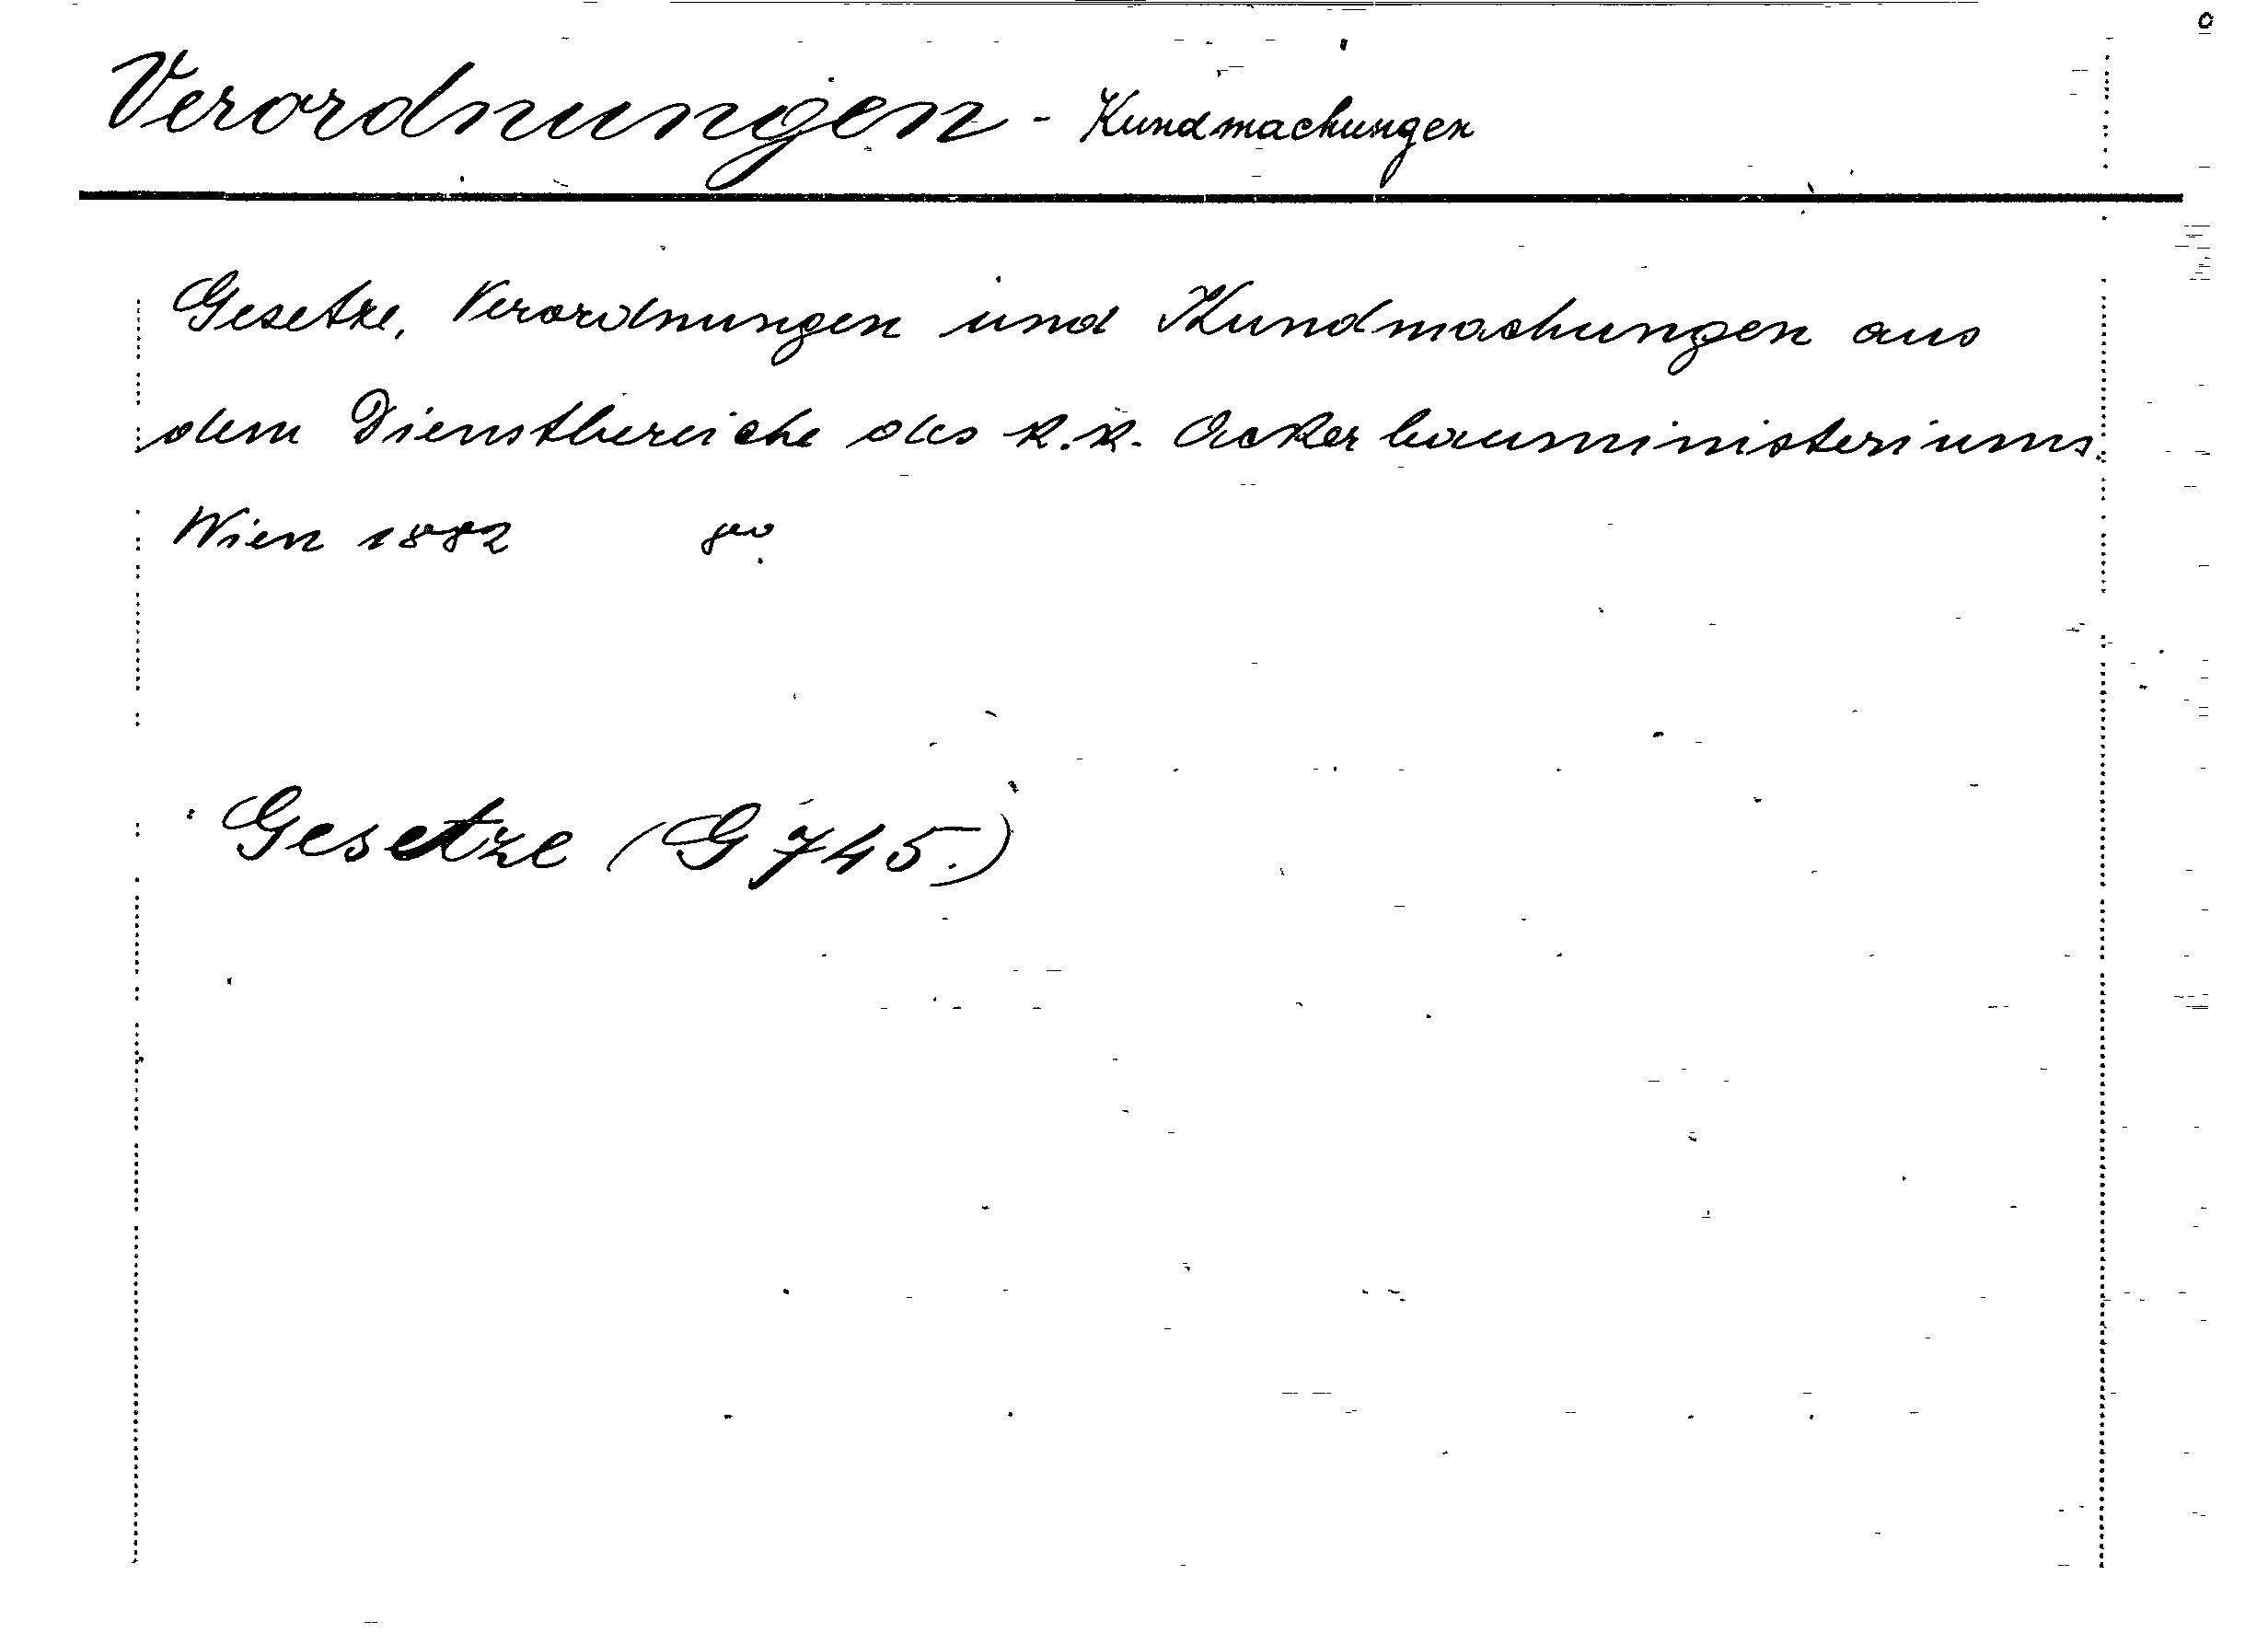 Verordnungen - Kundmachungen
Gesetze, Verordnungen und Kundmachungen aus
dem Dienstbereiche des k.k. Ackerbauministeriums.
Wien 1882 8°
Gesetze (G 745.)